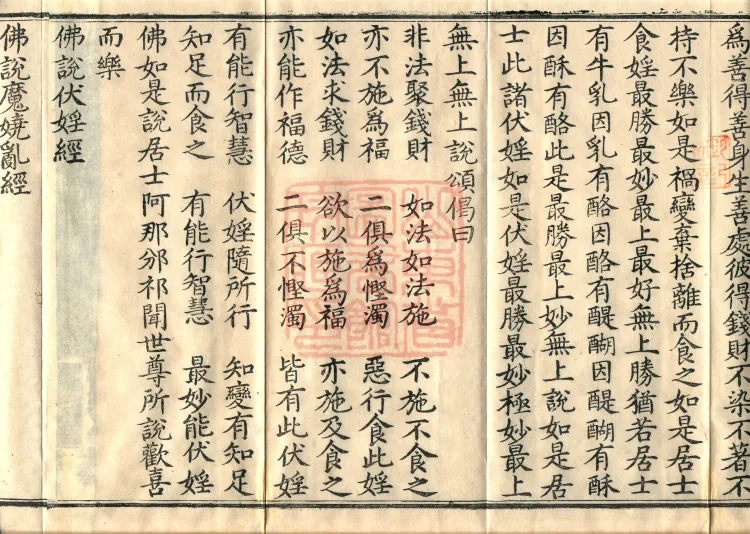 為善得善身生善處彼得錢財不染不著不
持不樂如是禍變棄捨離而食之如是居士
食婬最勝最妙最上最好無上勝猶若居士
有牛乳因乳有酪因酪有醍醐因醍醐有酥
因酥有酪此是最勝最上妙無上說如是居
士此諸伏婬如是伏婬最勝最妙極妙最上
無上無上說頌偈曰
非法聚錢財 如法如法施 不施不食之
亦不施為福 二俱為慳濁 惡行食此婬
如法求錢財 欲以施為福 亦施及食之
亦能作福德 二俱不慳濁 皆有此伏婬
有能行智慧 伏婬隨所行 知變有知足
知足而食之 有能行智慧 最妙能伏婬
佛如是說居士阿那邠祁聞世尊所說歡喜
而樂
佛說伏婬經
佛說魔嬈亂經